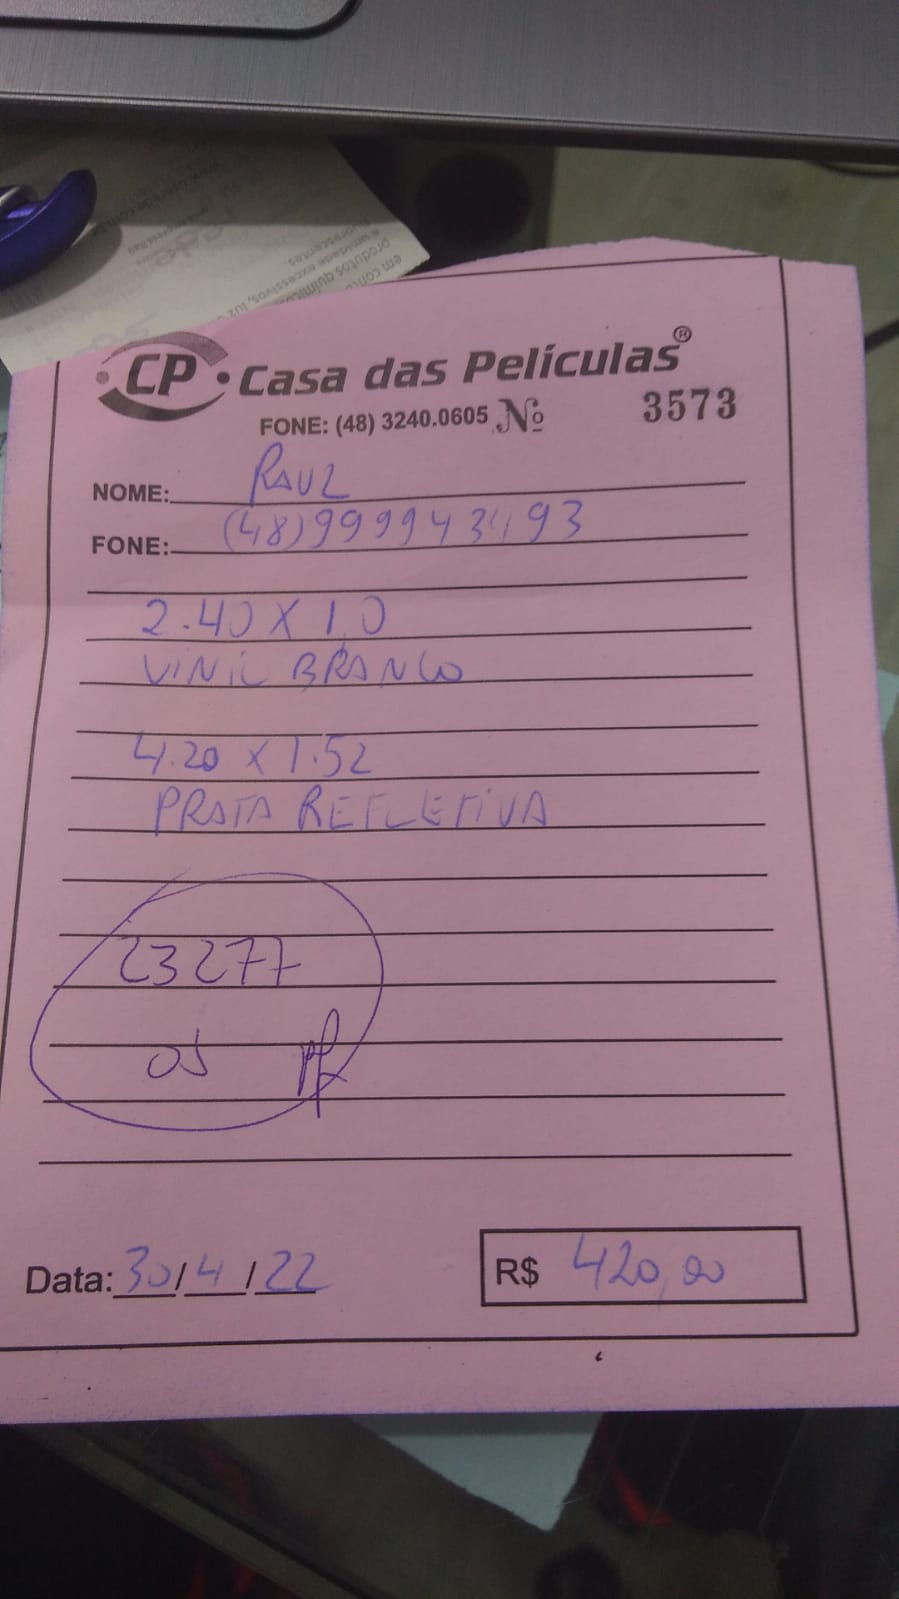 CP Casa das Películas®
FONE: (48) 3240.0605 Nº 3573
NOME: RAUL
FONE: (48)999943493
2.40 X 1,0
VINIL BRANCO
4.20 X 1.52
PRATA REFLETIVA
23277
05
Data: 30/4/22 R$ 420,00